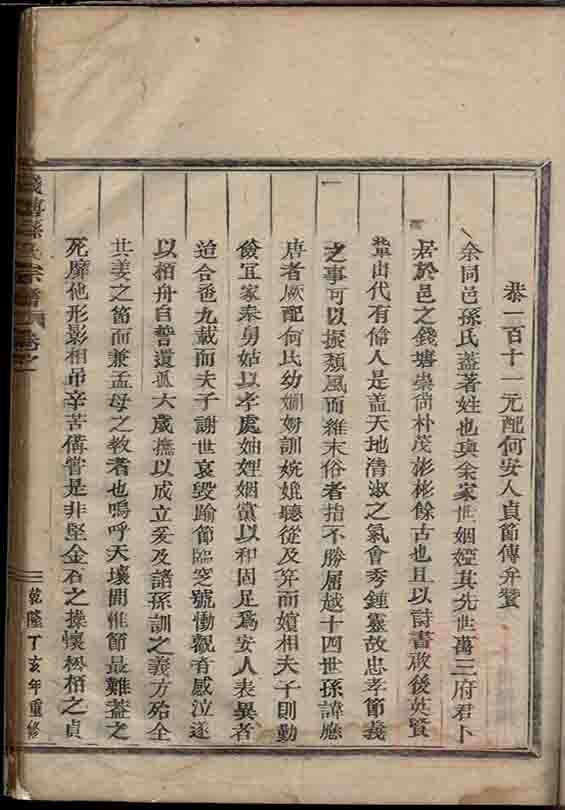 恭一百十一元配何安人貞節傳弁贊
余同邑孫氏蓋著姓也與余家世姻婭其先世萬三府君卜
居於邑之錢塘崇尚朴茂彬彬餘古也且以詩書啟後英賢
輩出代有偉人是盖天地清淑之氣會秀鍾靈故忠孝節義
之事可以振頹風而維末俗者指不勝屈越十四世孫諱應
唐者厥配何氏幼嫺姆訓婉娩聽從及笄而嬪相夫子則勤
儉宜家奉舅姑以孝處妯娌姻黨以和固足為安人表異者
迨合巹九載而夫子謝世哀毀踰節臨穸號慟觀者感泣遂
以栢舟自誓遺孤六歲撫以成立爰及諸孫訓之義方殆全
共姜之節而兼孟母之教者也嗚呼天壤間惟節最難蓋之
死靡他形影相吊辛苦備嘗是非堅金石之操懷松栢之貞
孫氏宗譜 卷之
乾隆丁亥年重修